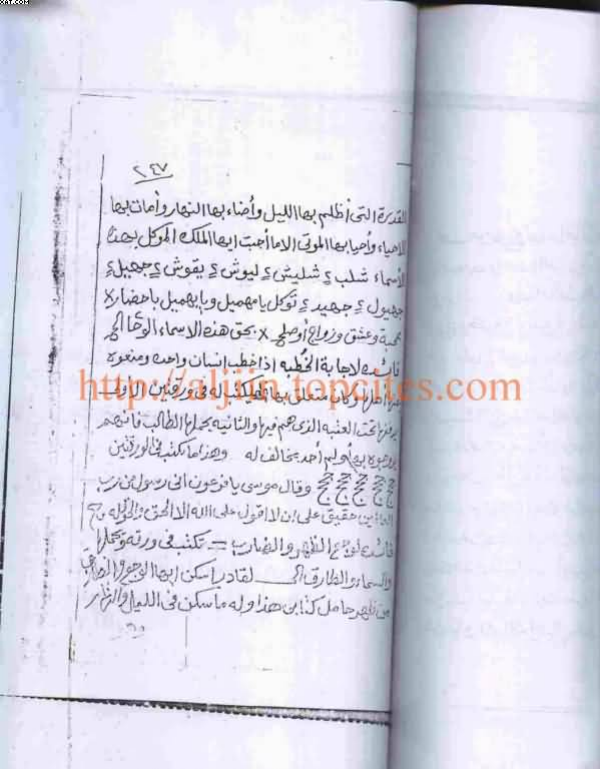 ٢٤٧
القدرة التى أظلم بها الليل وأضاء بها النهار وأمات بها
الاحياء وأحيا بها الموتى الا ما أجبت ايها الملك الموكل بهذه
الأسماء شلب ٤ شليش ٤ ليوش ٤ يقوش ٤ جهيل ٤
جهيول ٤ جهيد ٤ توكل يا مهميل ويا يهميل باحضار x
بمحبة وعشق وزواج أو صلح x بحق هذه الاسماء الوحا الخ
فائده لاجابة الخطبه اذا خطب إنسان واحده ومنعوه
منها اهلها وكان متعلق بها فليكتب له فى ورقتين الاولى
http://aljiin.topcites.com
يدفنها تحت العتبه الذى هم فيها والثانيه يحملها الطالب فانهم
بها ولم أحد يخالف له وهذا ما يكتب فى الورقتين
وقال موسى يا فرعون انى رسول من رب
العالمين حقيق على ان لا اقول على الله الا الحق
فائده لوجع الظهر والضارب تكتب فى ورقه وتحملها
والسماء والطارق الى لقادر اسكن ايها الوجع والضارب
من ظهر حامل كتابى هذا وله ما سكن فى الليل والنهار